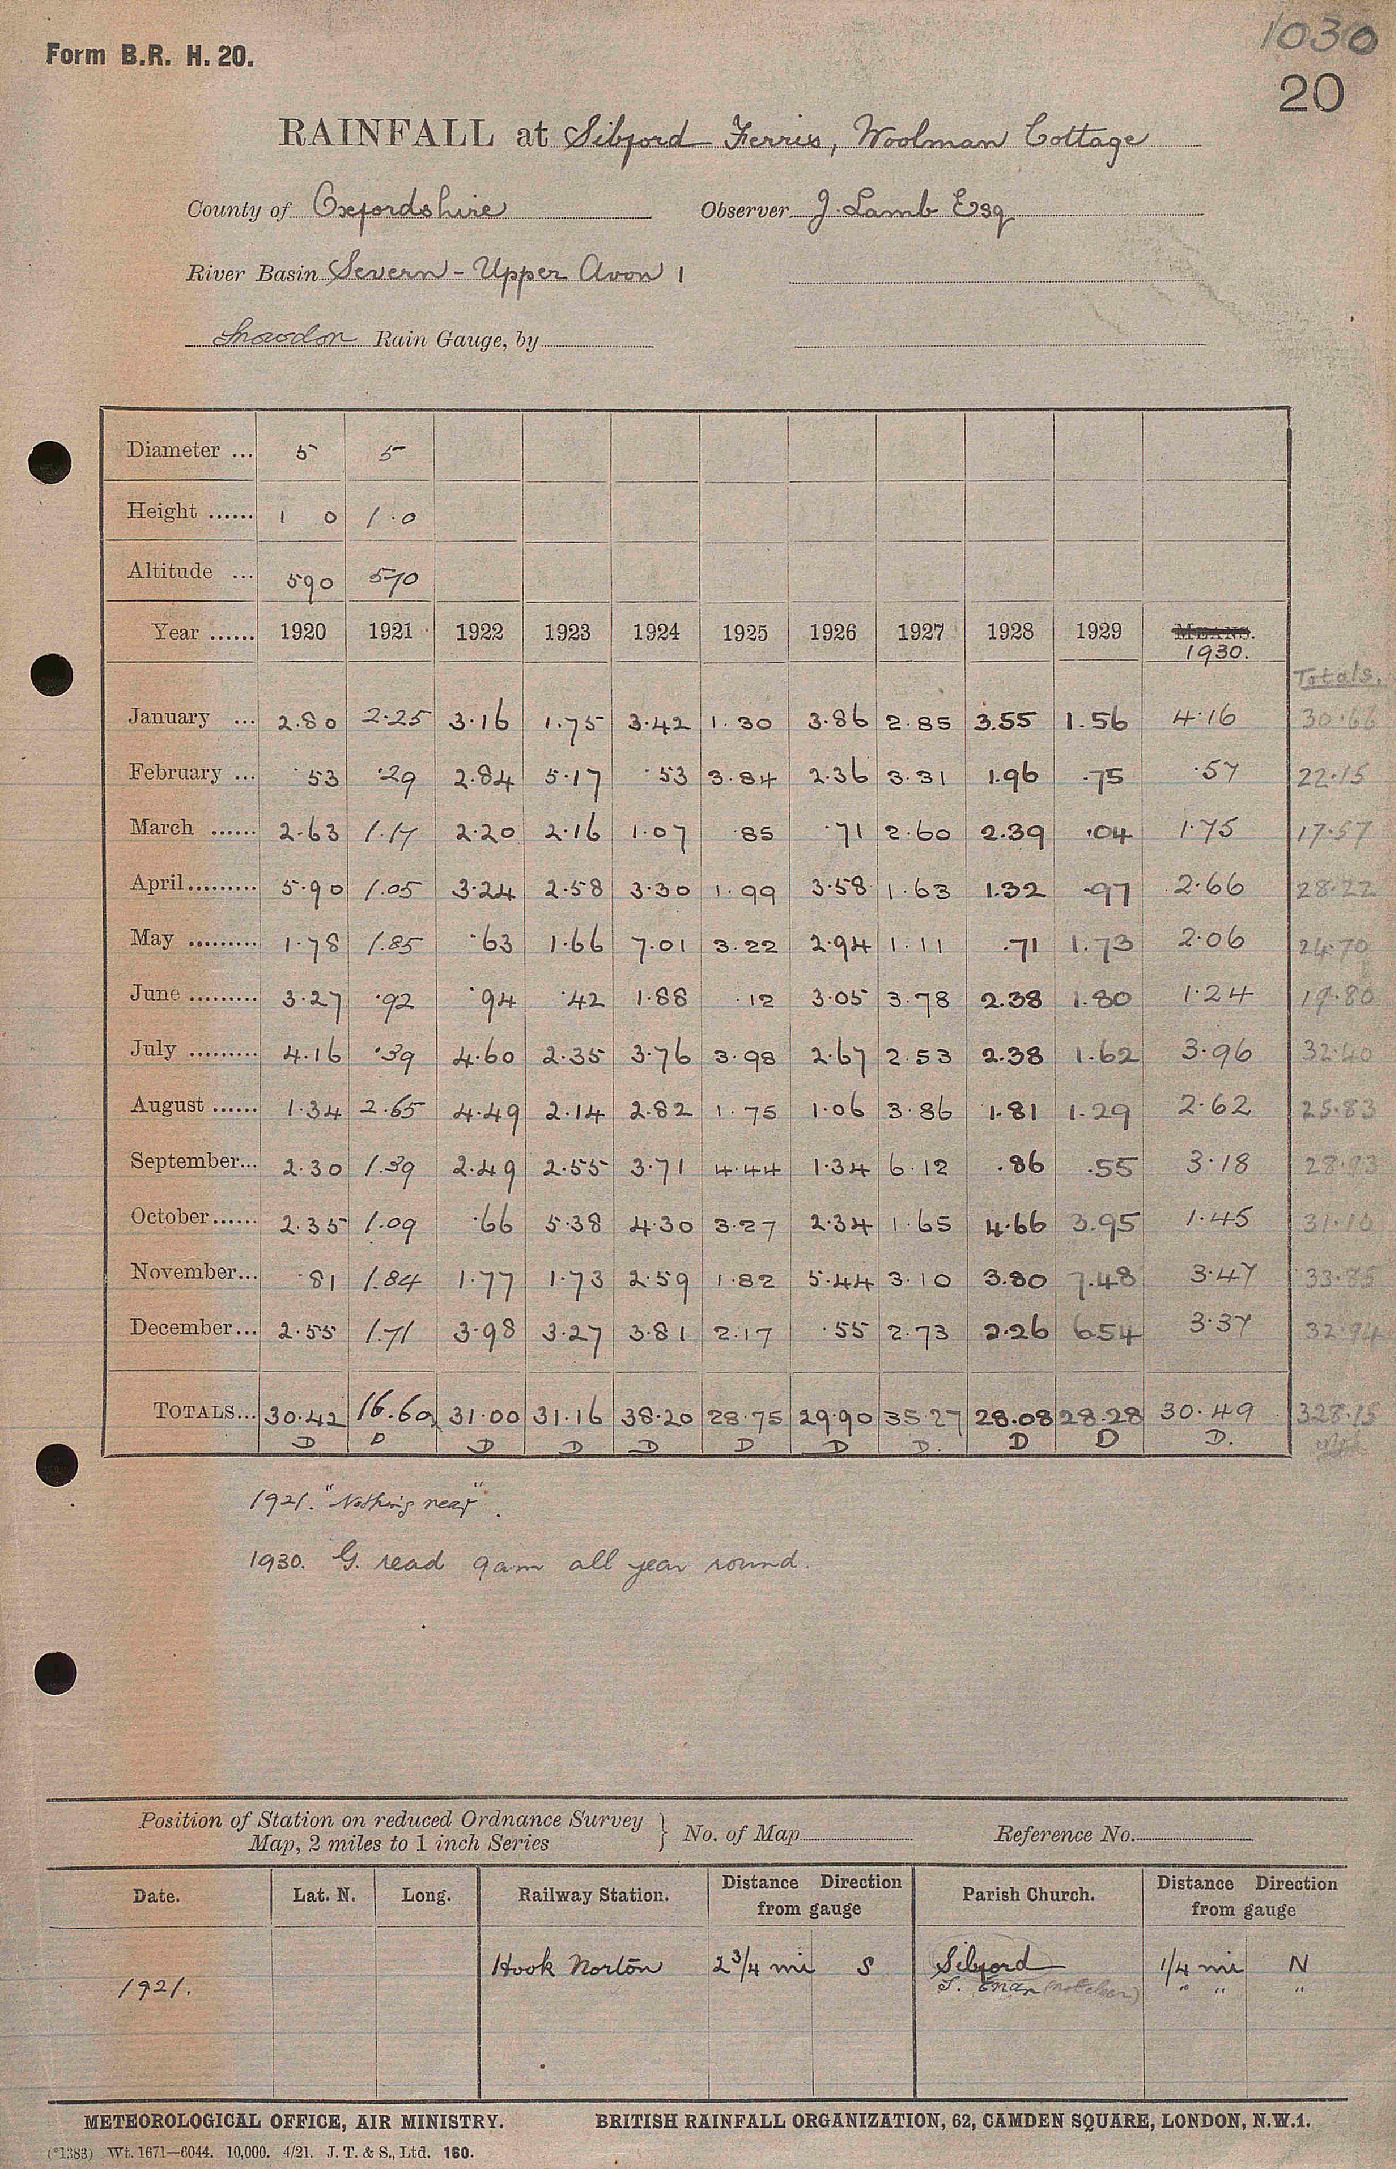 1030
Form B.R. H. 20.
20
RAINFALL at Sibford Ferris, Woolman Cottage
County of Oxfordshire Observer J. Lamb Esq
River Basin Severn - Upper Avon 1
Snowdon Rain Gauge, by
Diameter ... 5 5
Height ...... 1 0 1.0
Altitude ... 590 570
Year ...... 1920 1921 1922 1923 1924 1925 1926 1927 1928 1929 MEANS.
1930.
Totals.
January ... 2.80 2.25 3.16 1.75 3.42 1.30 3.86 2.85 3.55 1.56 4.16 30.66
February ... .53 .29 2.84 5.17 .53 3.84 2.36 3.31 1.96 .75 .57 22.15
March ...... 2.63 1.17 2.20 2.16 1.07 .85 .71 2.60 2.39 .04 1.75 17.57
April ......... 5.90 1.05 3.24 2.58 3.30 1.99 3.58 1.63 1.32 .97 2.66 28.22
May ......... 1.78 1.85 .63 1.66 7.01 3.22 2.94 1.11 .71 1.73 2.06 24.70
June ......... 3.27 .92 .94 .42 1.88 .12 3.05 3.78 2.38 1.80 1.24 19.80
July ......... 4.16 .39 4.60 2.35 3.76 3.98 2.67 2.53 2.38 1.62 3.96 32.40
August ...... 1.34 2.65 4.49 2.14 2.82 1.75 1.06 3.86 1.81 1.29 2.62 25.83
September... 2.30 1.39 2.49 2.55 3.71 4.44 1.34 6.12 .86 .55 3.18 28.93
October ...... 2.35 1.09 .66 5.38 4.30 3.27 2.34 1.65 4.66 3.95 1.45 31.10
November... .81 1.84 1.77 1.73 2.59 1.82 5.44 3.10 3.80 7.48 3.47 33.85
December... 2.55 1.71 3.98 3.27 3.81 2.17 .55 2.73 2.26 6.54 3.37 32.94
TOTALS... 30.42 16.60 31.00 31.16 38.20 28.75 29.90 35.27 28.08 28.28 30.49 328.15
D D D D D D D D. D D D.
1921. "Nothing near".
1930. G. read 9am all year round.
Position of Station on reduced Ordnance Survey
Map, 2 miles to 1 inch Series } No. of Map Reference No.
Date. Lat. N. Long. Railway Station. Distance Direction from gauge Parish Church. Distance Direction from gauge
1921. Hook Norton 2 3/4 mi S Sibford 1/4 mi N
" " "
METEOROLOGICAL OFFICE, AIR MINISTRY. BRITISH RAINFALL ORGANIZATION, 62, CAMDEN SQUARE, LONDON, N.W.1.
(*1383) Wt. 1671—6044. 10,000. 4/21. J. T. & S., Ltd. 160.